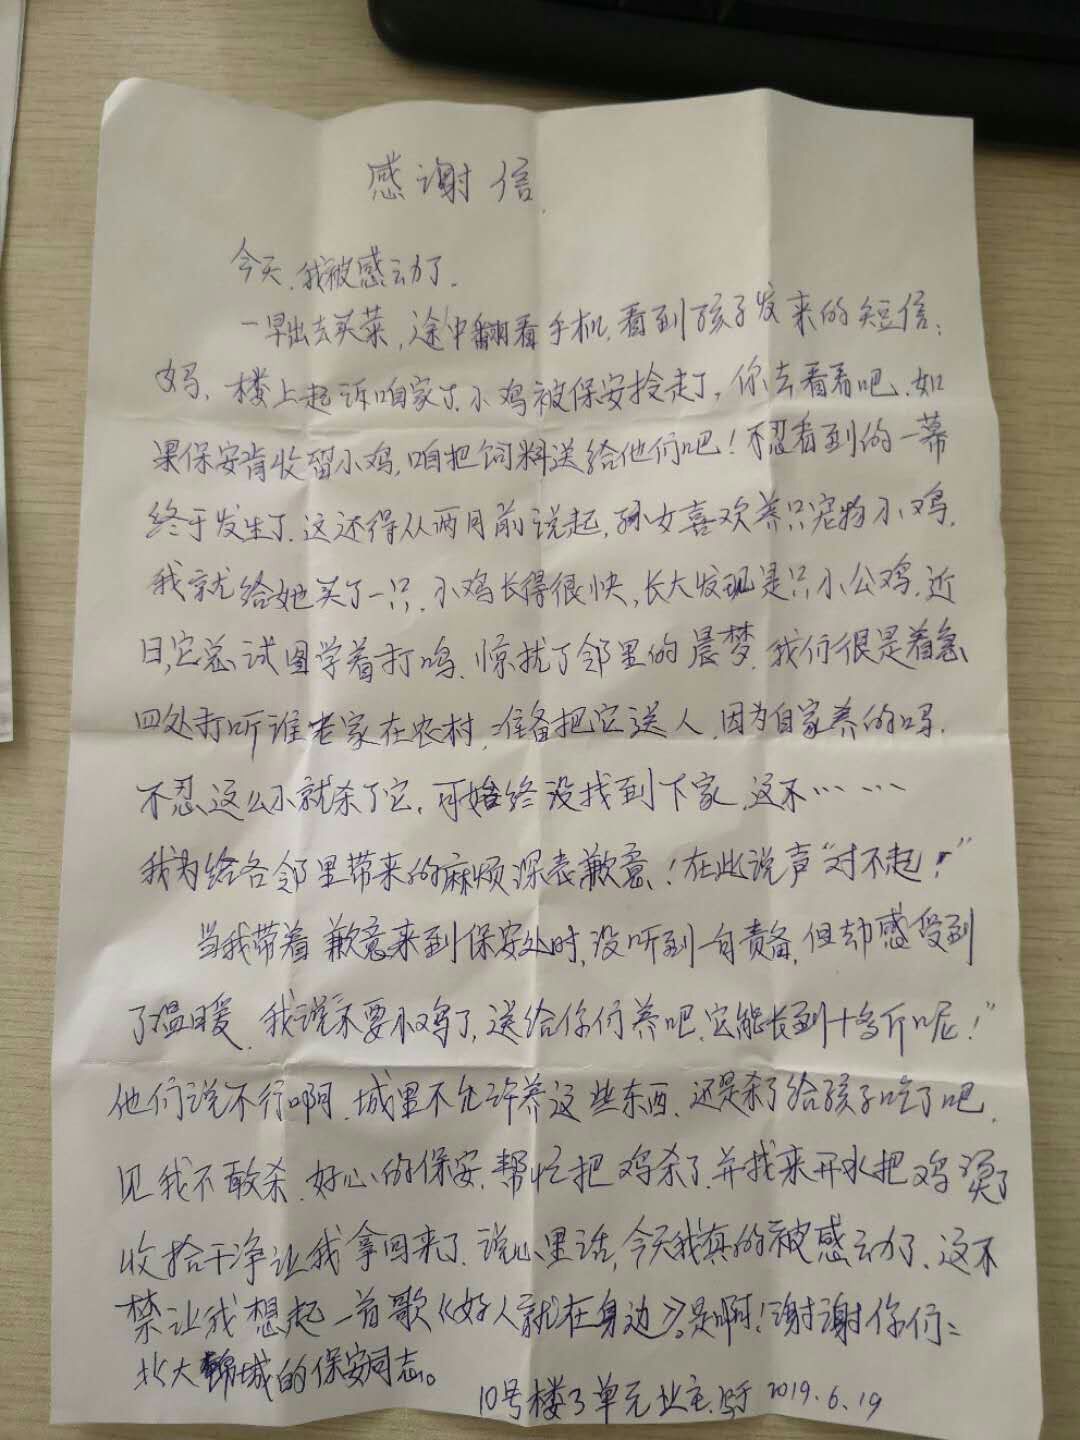 感谢信
今天.我被感动了.
一早出去买菜,途中翻看手机,看到孩子发来的短信:
妈,楼上起诉咱家了.小鸡被保安拎走了,你去看看吧.如
果保安肯收留小鸡,咱把饲料送给他们吧!不忍看到的一幕
终于发生了.这还得从两月前说起,孙女喜欢养只宠物小鸡,
我就给她买了一只.小鸡长得很快,长大发现是只小公鸡.近
日,它总试图学着打鸣、惊扰了邻里的晨梦.我们很是着急
四处打听谁老家在农村,准备把它送人,因为自家养的鸡.
不忍这么小就杀了它,可始终没找到下家,这不……
我为给各邻里带来的麻烦深表歉意!在此说声“对不起!”
当我带着歉意来到保安处时,没听到一句责备,但却感受到
了温暖.我说“不要小鸡了,送给你们养吧.它能长到十多斤呢!”
他们说不行啊.城里不允许养这些东西.还是杀了给孩子吃了吧.
见我不敢杀.好心的保安.帮忙把鸡杀了.并找来开水把鸡烫了
收拾干净让我拿回来了.说心里话,今天我真的被感动了、这不
禁让我想起一首歌《好人就在身边》。是啊!谢谢你们:
北大锦城的保安同志。
10号楼3单元业主. 2019.6.19